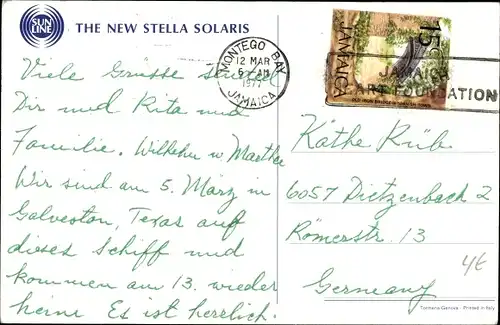 SUN LINE
THE NEW STELLA SOLARIS
MONTEGO BAY
12 MAR
1977
JAMAICA
15
JAMAICA
JAMAICA
ART FOUNDATION
Viele Grüsse
Dir und Rita und
Familie. Wilhelm u Martha
Wir sind am 5. März in
Galveston, Texas auf
dieses Schiff und
kommen am 13. wieder
heine Es ist herrlich.
Käthe Rüb
6057 Dietzenbach 2
Römerstr. 13
Germany
4€
Printed in Italy